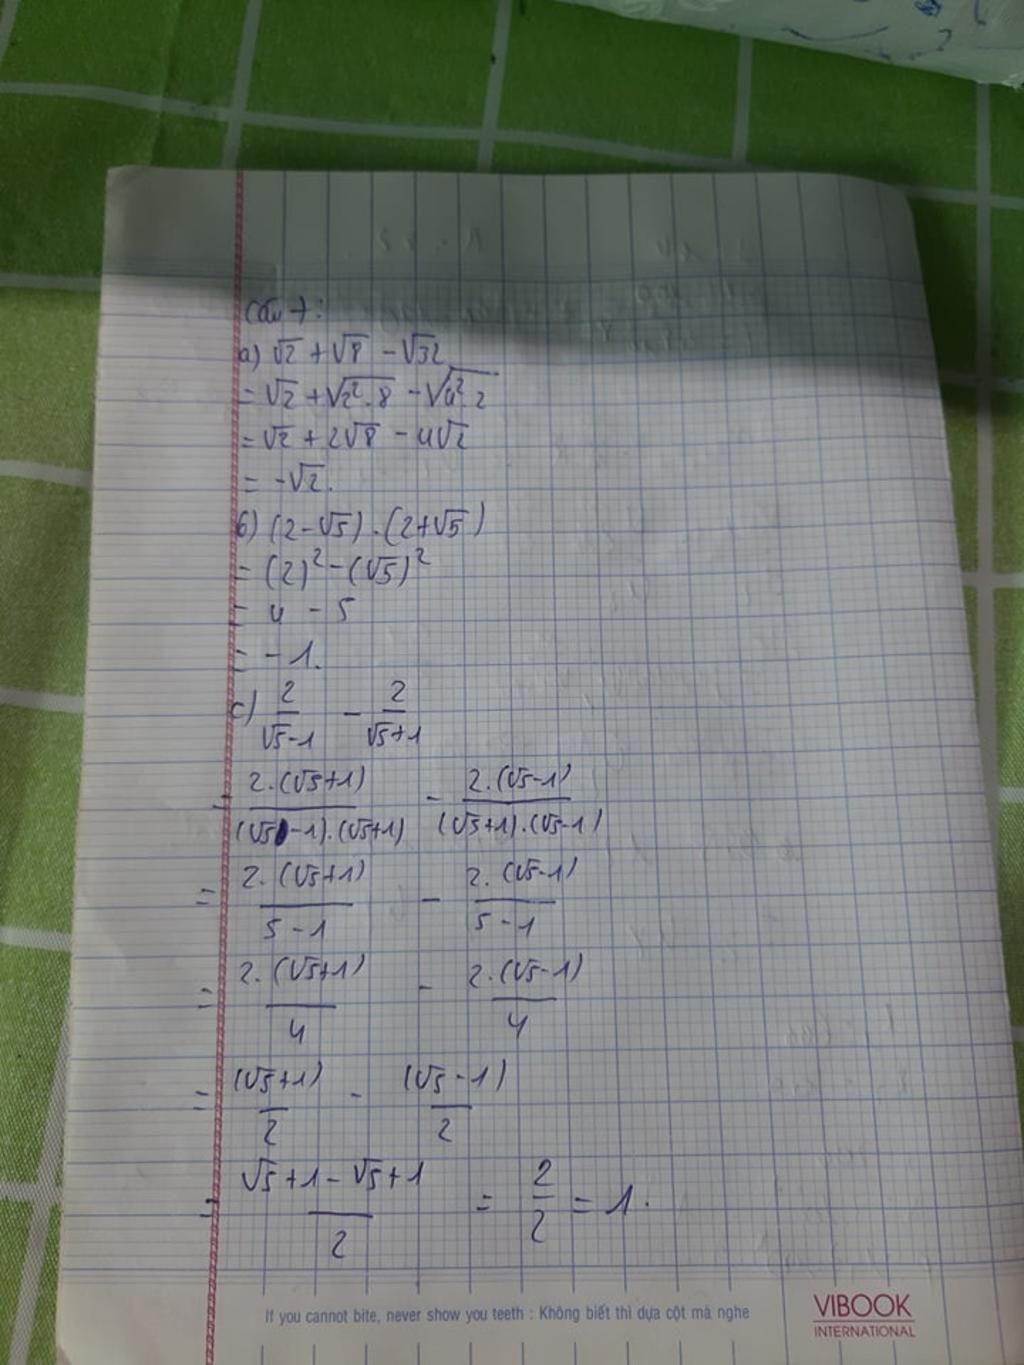 Câu 7:
a) √2 + √8 - √32
= √2 + √2².8 - √4².2
= √2 + 2√8 - 4√2
= -√2.
b) (2-√5).(2+√5)
= (2)² - (√5)²
= 4 - 5
= -1.
c) 2/(√5-1) - 2/(√5+1)
= 2.(√5+1)/(√5-1).(√5+1) - 2.(√5-1)/(√5+1).(√5-1)
= 2.(√5+1)/(5-1) - 2.(√5-1)/(5-1)
= 2.(√5+1)/4 - 2.(√5-1)/4
= (√5+1)/2 - (√5-1)/2
= (√5+1-√5+1)/2 = 2/2 = 1.
If you cannot bite, never show you teeth : Không biết thì dựa cột mà nghe
VIBOOK
INTERNATIONAL